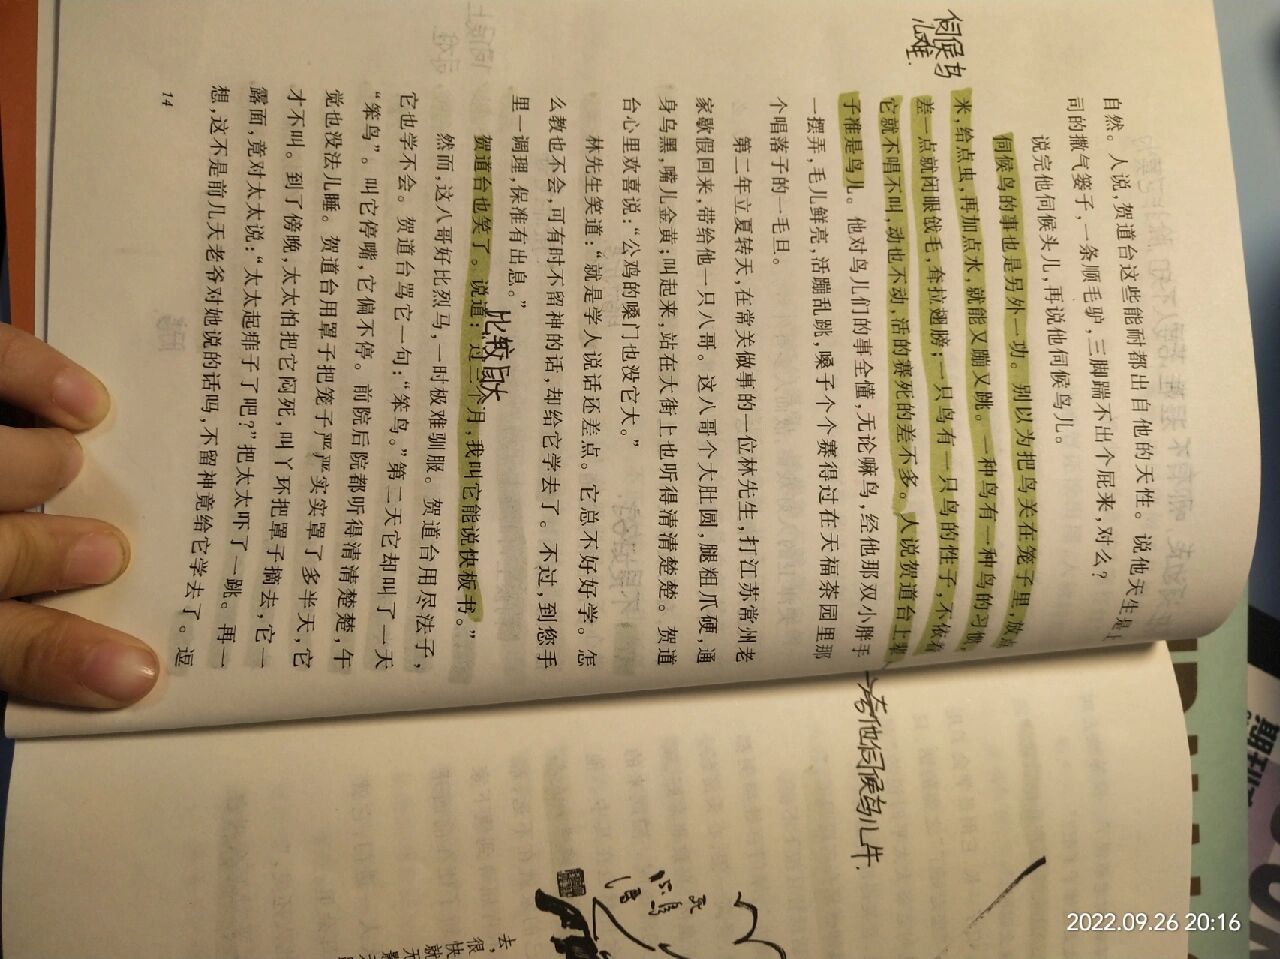 伺候鸟
心难.
自然。人说，贺道台这些能耐都出自他的天性。说他天生是上
司的撒气篓子，一条顺毛驴，三脚踹不出个屁来，对么？
说完他伺候头儿，再说他伺候鸟儿。
伺候鸟的事也是另外一功。别以为把鸟关在笼子里，放点
米，给点虫，再加点水，就能又蹦又跳。一种鸟有一种鸟的习惯，
差一点就闭眼戗毛，耷拉翅膀；一只鸟有一只鸟的性子，不依着
它就不唱不叫，动也不动，活的赛死的差不多。人说贺道台上辈
子准是鸟儿。他对鸟儿们的事全懂，无论嘛鸟，经他那双小胖手
一摆弄，毛儿鲜亮，活蹦乱跳，嗓子个个赛得过在天福茶园里那
个唱落子的一毛旦。
→夸他伺候鸟儿牛.
第二年立夏转天，在常关做事的一位林先生，打江苏常州老
家歇假回来，带给他一只八哥。这八哥个大肚圆，腿粗爪硬，通
身乌黑，嘴儿金黄；叫起来，站在大街上也听得清清楚楚。贺道
台心里欢喜说：“公鸡的嗓门也没它大。”
林先生笑道：“就是学人说话还差点。它总不好好学。怎
么教也不会，可有时不留神的话，却给它学去了。不过，到您手
里一调理，保准有出息。”
贺道台也笑了。说道：“过三个月，我叫它能说快板书。”
然而，这八哥好比烈马，一时极难驯服。贺道台用尽法子，
它也学不会。贺道台骂它一句：“笨鸟。”第二天它却叫了一天
“笨鸟”。叫它停嘴，它偏不停。前院后院都听得清清楚楚，午
觉也没法儿睡。贺道台用罩子把笼子严严实实罩了多半天，它
才不叫。到了傍晚，太太怕把它闷死，叫丫环把罩子摘去，它一
露面，竟对太太说：“太太起痱子了吧？”把太太吓了一跳。再一
想，这不是前几天老爷对她说的话吗，不留神竟给它学去了。逗
14
2022.09.26 20:16